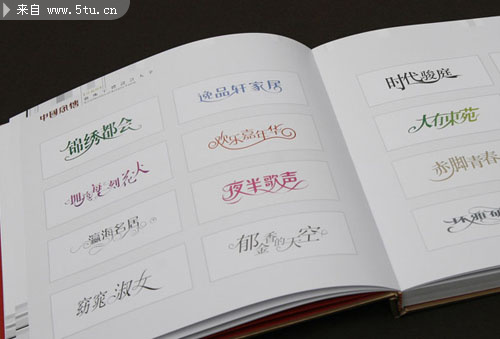 来自 www.5tu.cn
中国风情
锦绣都会
逸品轩家居
欢乐嘉年华
瀛海名居
夜半歌声
窈窕淑女
郁金香的天空
时代骏庭
大有東苑
赤脚青春